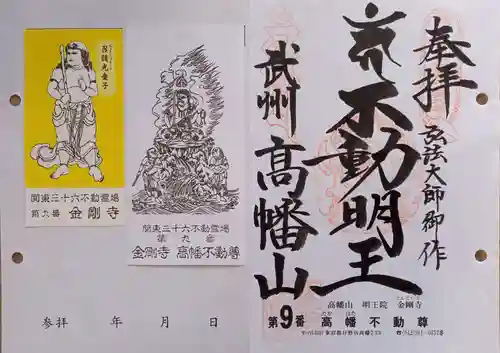 奉拝
弘法大師御作
不動明王
武州
高幡山
高幡山 明王院 金剛寺
第9番 高幡不動尊
関東三十六不動霊場
第九番 金剛寺
関東三十六不動霊場
第九番
金剛寺 高幡不動尊
参拝 年 月 日